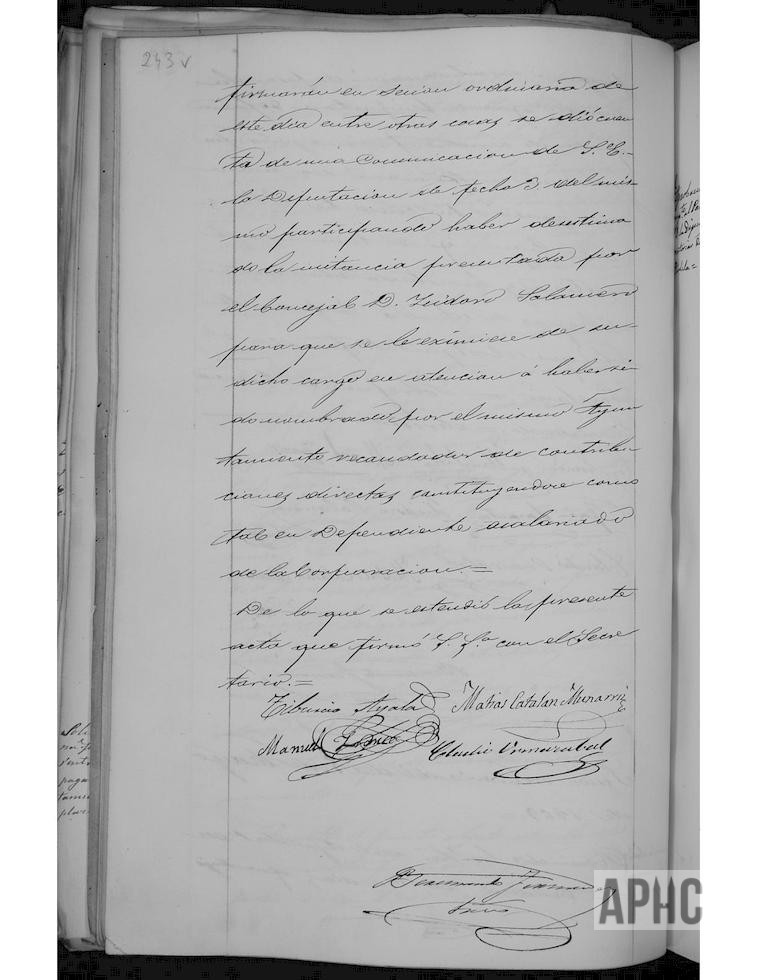 243 v
firmarán en sesion ordinaria de
este dia entre otras cosas se dió cuen
ta de una Comunicacion de S. E.
la Diputacion de fecha 3 del mis
mo participando haber desestima
do la instancia presentada por
el Concejal D. Isidoro Salamero
para que se le eximiese de su
dicho cargo en atencion á haber si
do nombrado por el mismo Ayun
tamiento recaudador de contribu
ciones directas constituyendose como
tal en Dependiente asalariado
de la Corporacion.=
De lo que se estendió la presente
acta que firmó S. Sa. con el Secre
tario.=
Tiburcio Ayala Matias Catalan Munarriz
Manuel Claudio
APHC